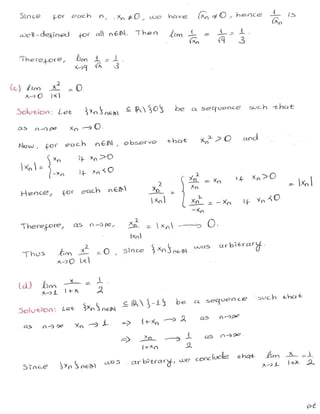 Since for each n, xₙ ≠ 0, we have √xₙ ≠ 0, hence 1/√xₙ is
well-defined for all n∈ℕ. Then lim 1/√xₙ = 1/√9 = 1/3.
Therefore, lim x→9 1/√x = 1/3.
(c) lim x→0 x²/|x| = 0.
Solution: Let {xₙ}n∈ℕ ⊆ ℝ\{0} be a sequence such that
as n→∞ xₙ → 0.
Now, for each n∈ℕ, observe that xₙ² > 0 and
|xₙ| = { xₙ if xₙ > 0
-xₙ if xₙ < 0
Hence, for each n∈ℕ xₙ²/|xₙ| = { xₙ²/xₙ = xₙ if xₙ > 0
xₙ²/-xₙ = -xₙ if xₙ < 0 = |xₙ|
Therefore, as n→∞, xₙ²/|xₙ| = |xₙ| → 0.
Thus lim x→0 x²/|x| = 0, since {xₙ}n∈ℕ was arbitrary.
(d) lim x→1 x/1+x = 1/2
Solution: Let {xₙ}n∈ℕ ⊆ ℝ\{-1} be a sequence such that
as n→∞ xₙ → 1. ⇒ 1+xₙ → 2 as n→∞
⇒ xₙ/1+xₙ → 1/2 as n→∞
Since {xₙ}n∈ℕ was arbitrary, we conclude that lim x→1 x/1+x = 1/2